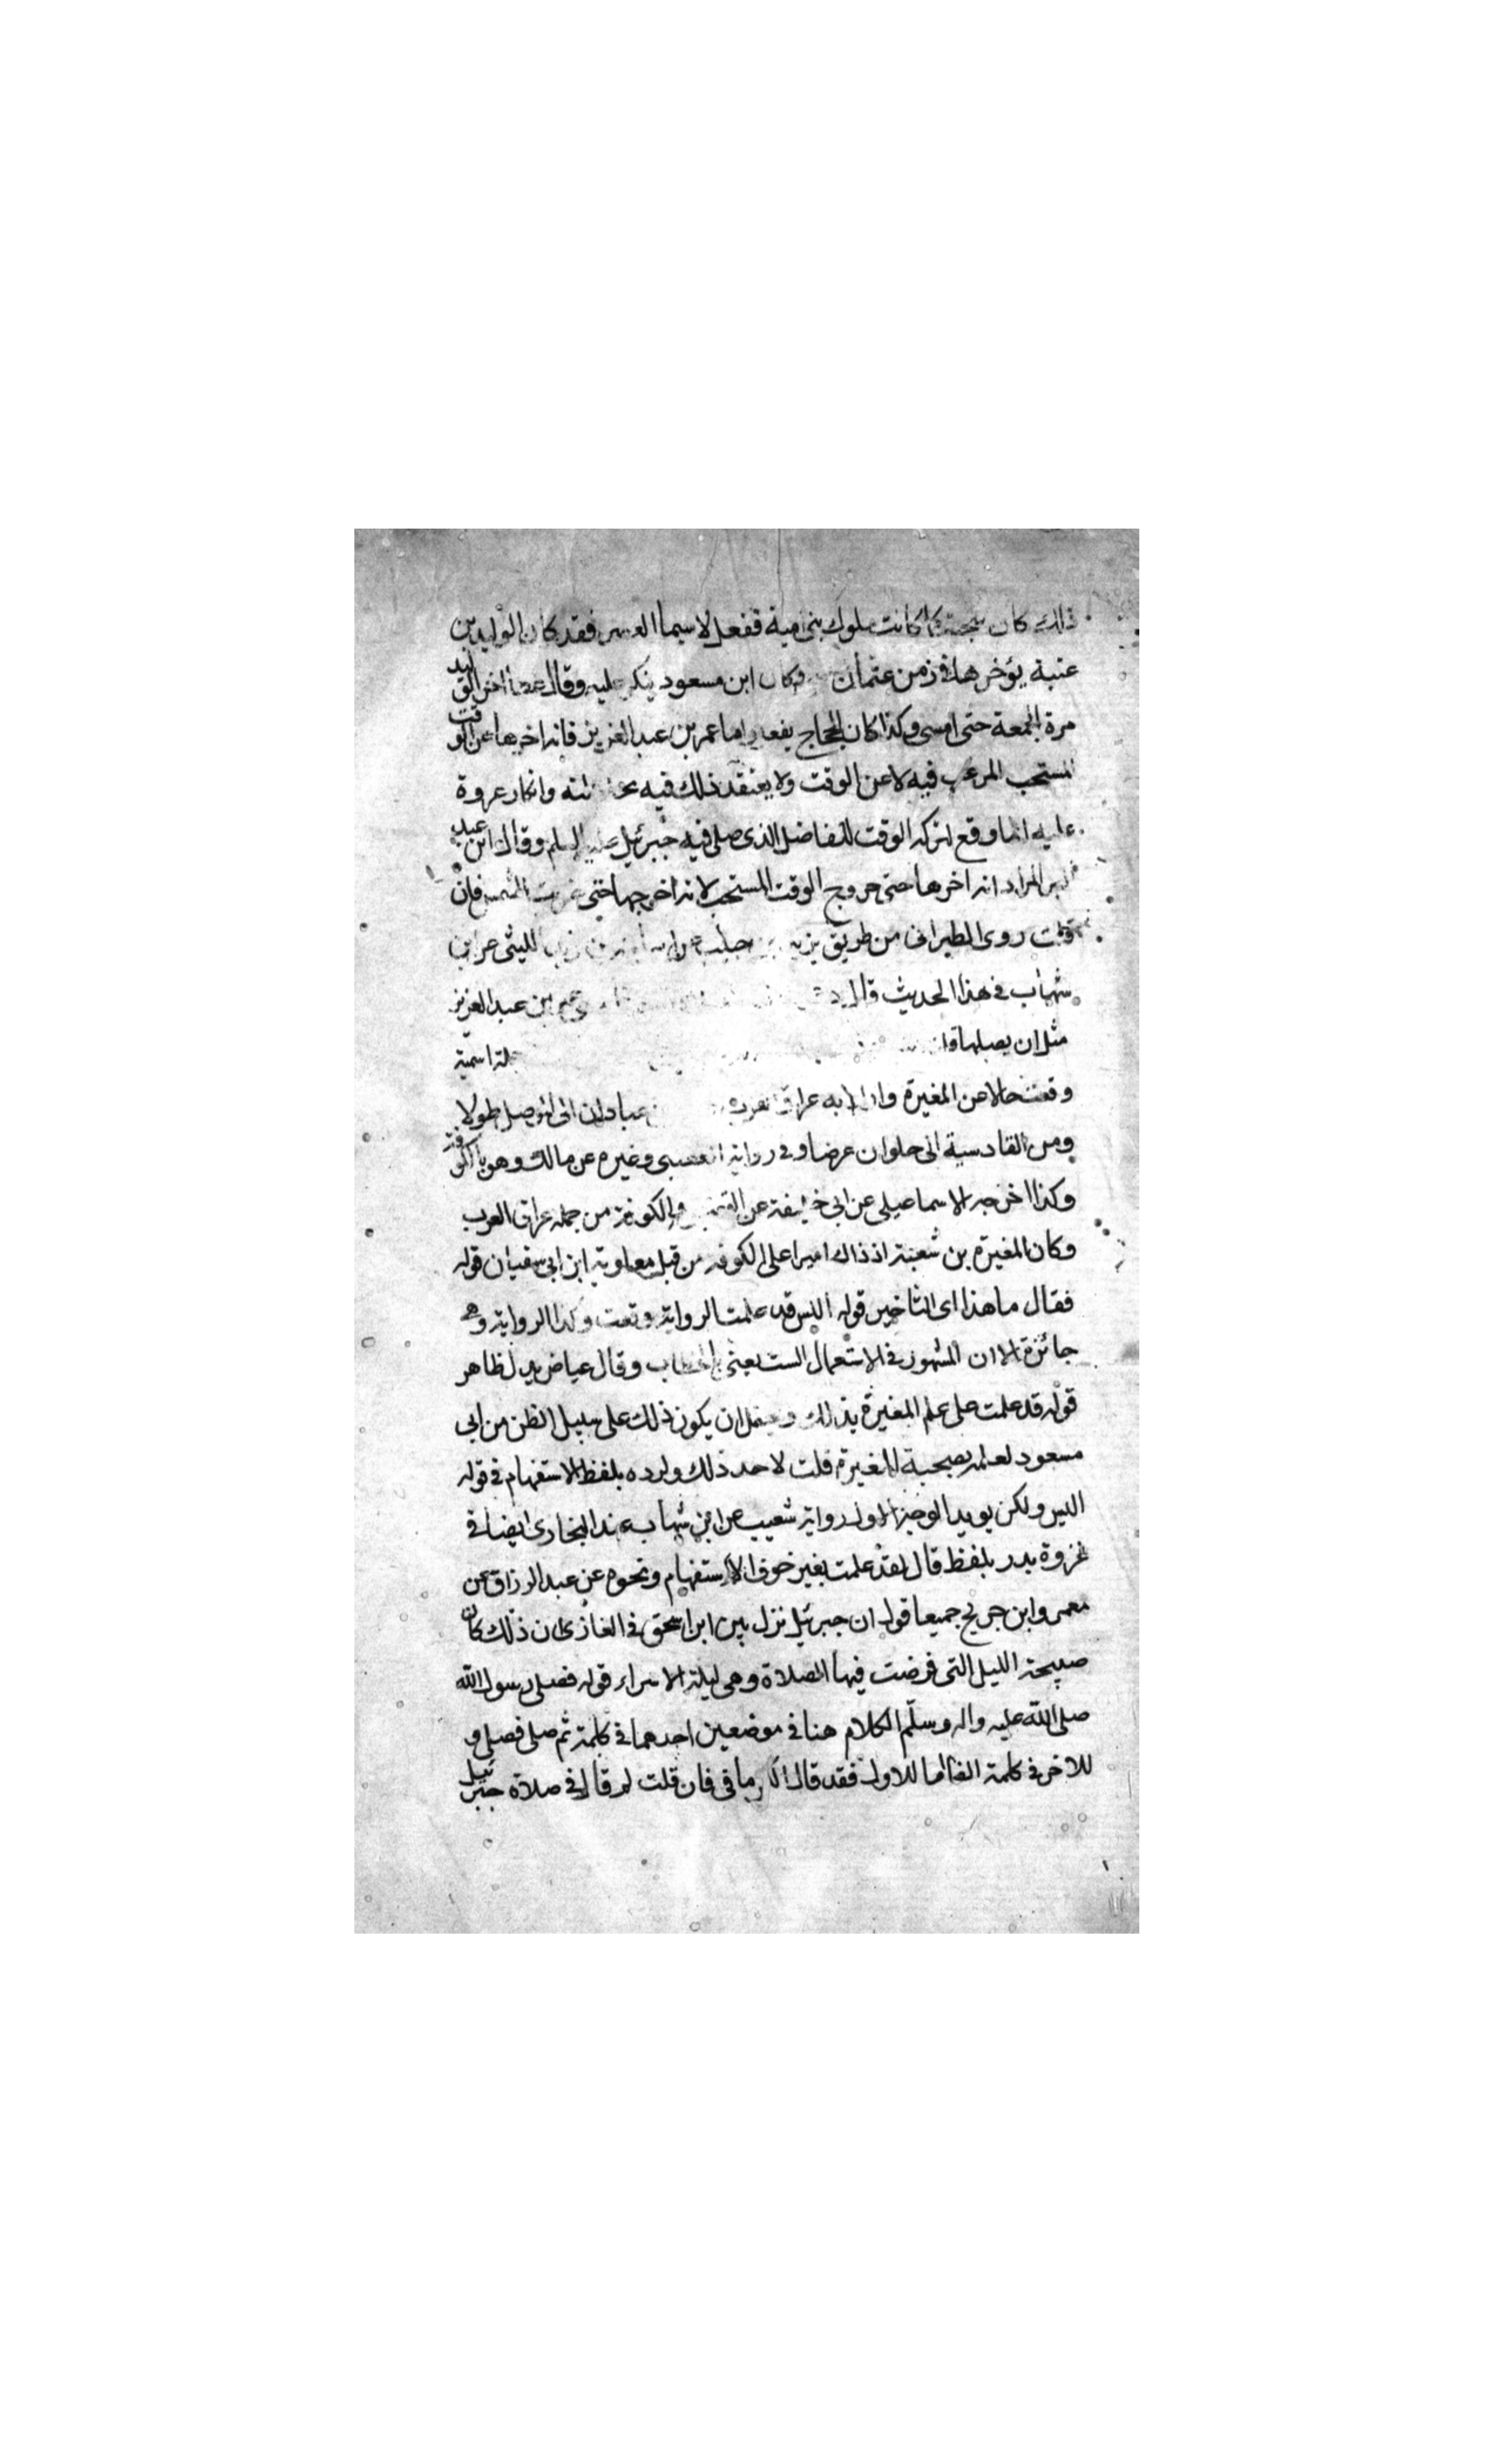 ذلك كان سجية كما كانت ملوك بني امية تفعل لا سيما العصر فقد كان الوليد بن
عتبة يؤخرها في زمن عثمان وكان ابن مسعود ينكر عليه وقال عطا اخر الوليد
مرة الجمعة حتى امسى وكذا كان الحجاج يفعل واما عمر بن عبد العزيز فانه اخرها عن الوقت
المستحب المرغب فيه لا عن الوقت ولا يعتقد ذلك فيه وانكار عروة
عليه انما وقع لتركه الوقت الفاضل الذي صلى فيه جبرئيل عليه السلم وقال ابن عبد
البر المراد انه اخرها حتى خروج الوقت المستحب لا نه اخرجها حتى غربت الشمس فان
قلت روى الطبراني من طريق يزيد بن حبيب عن اسامة بن زيد الليثي عن ابن
شهاب في هذا الحديث قال عمر بن عبد العزيز
مثل ان يصليها اسمية
وقعت حالا عن المغيرة واراد به عراق العرب عبادان الى الموصل طولا
ومن القادسية الى حلوان عرضا وفي رواية القعنبي وغيره عن مالك وهو بالكوفة
وكذا اخرجه الاسماعيلي عن ابي خليفة عن القعنبي والكوفة من جملة عراق العرب
وكان المغيرة بن شعبة اذ ذاك اميرا على الكوفه من قبل معاوية ابن ابي سفيان قوله
فقال ما هذا اى التاخير قوله اليس قد علمت الرواية وقعت وكذا الرواية وهي
جائزة الا ان المشهور في الاستعمال الست يعني بالخطاب وقال عياض يدل ظاهر
قوله قد علمت على علم المغيرة بذلك ويحتمل ان يكون ذلك على سبيل الظن من ابي
مسعود لعلمه بصحبة المغيرة قلت لاحد ذلك ولرده بلفظ الاستفهام في قوله
اليس ولكن يويد الوجه الاول رواية شعيب عن ابن شهاب عند البخارى ايضا في
غزوة بدر بلفظ قال لقد علمت بغير حرف الاستفهام ونحوه عن عبد الرزاق عن
معمر وابن جريج جميعا قوله ان جبرئيل نزل بين ابن اسحق في المغازى ان ذلك كان
صبيحة الليل التي فرضت فيها الصلاة وهي ليلة الاسراء قوله فصلى رسول الله
صلى الله عليه واله وسلم الكلام هنا في موضعين احدهما في كلمة ثم صلى فصلى و
للاخر في كلمة الفا اما للاول فقد قال الكرماني فان قلت لم قال في صلاة جبرئيل